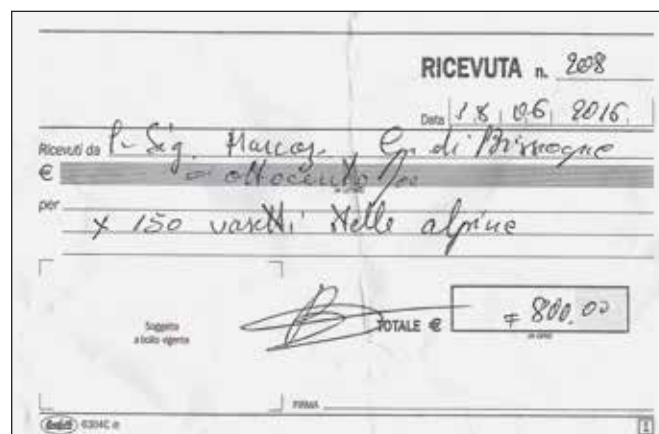 RICEVUTA n. 208
Data 18 06 2016
Ricevuti da Sig. di
€ ottocento/00
per
x 150 vasetti stelle alpine
Soggetta
a bollo vigente
TOTALE € = 800.00
IN CIFRE
FIRMA
6304C
1